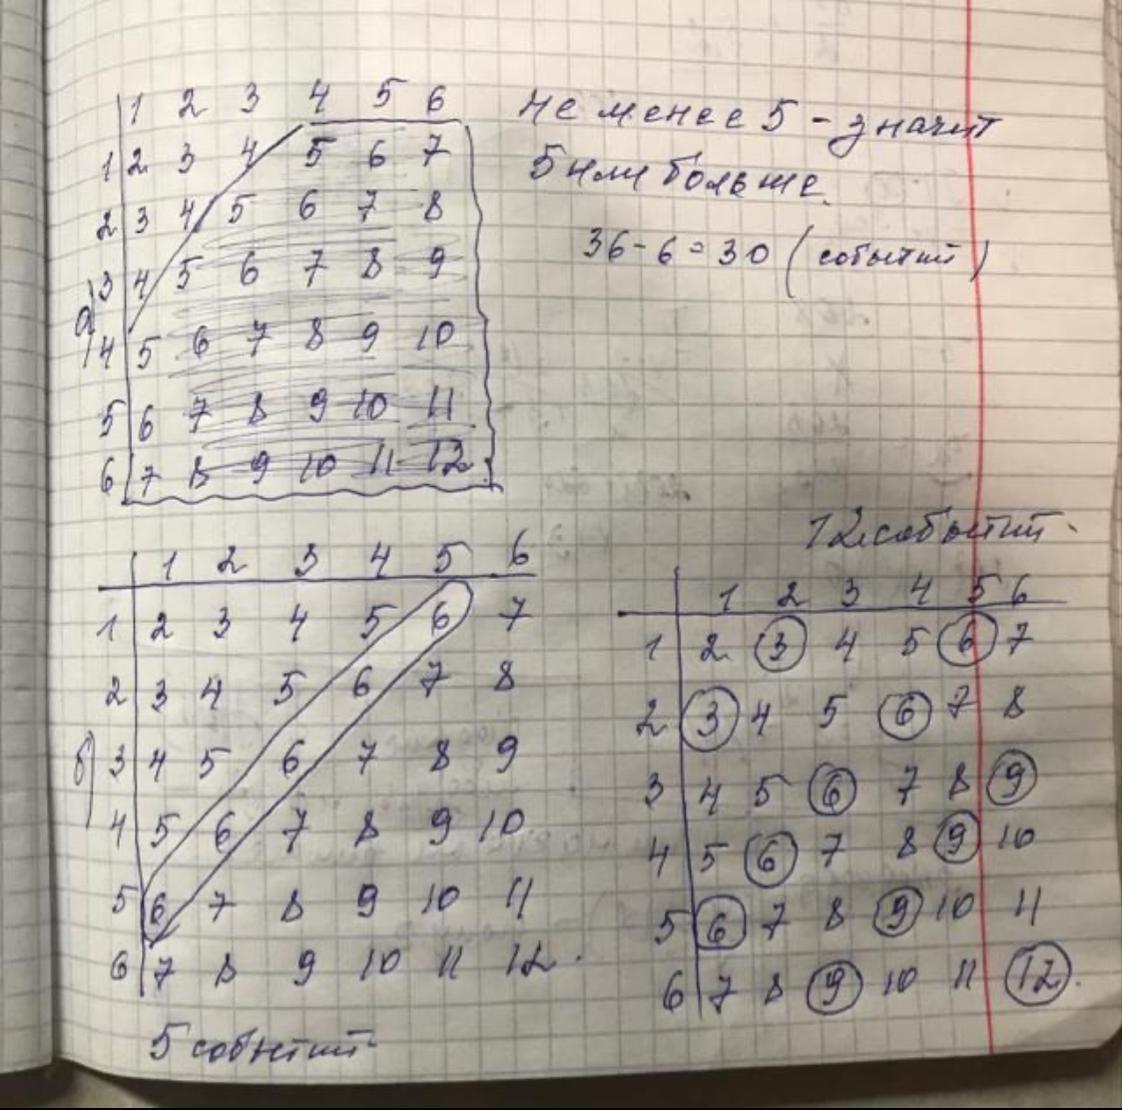 1 2 3 4 5 6
1 2 3 4 5 6 7
2 3 4 5 6 7 8
3 4 5 6 7 8 9
4 5 6 7 8 9 10
5 6 7 8 9 10 11
6 7 8 9 10 11 12
а)
не менее 5 - значит
5 или больше.
36-6=30 (событий)
1 2 3 4 5 6
1 2 3 4 5 6 7
2 3 4 5 6 7 8
б) 3 4 5 6 7 8 9
4 5 6 7 8 9 10
5 6 7 8 9 10 11
6 7 8 9 10 11 12.
5 событий
12 событий.
1 2 3 4 5 6
1 2 3 4 5 6 7
2 3 4 5 6 7 8
3 4 5 6 7 8 9
4 5 6 7 8 9 10
5 6 7 8 9 10 11
6 7 8 9 10 11 12.